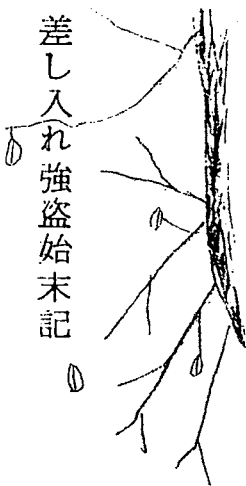 差し入れ強盗始末記